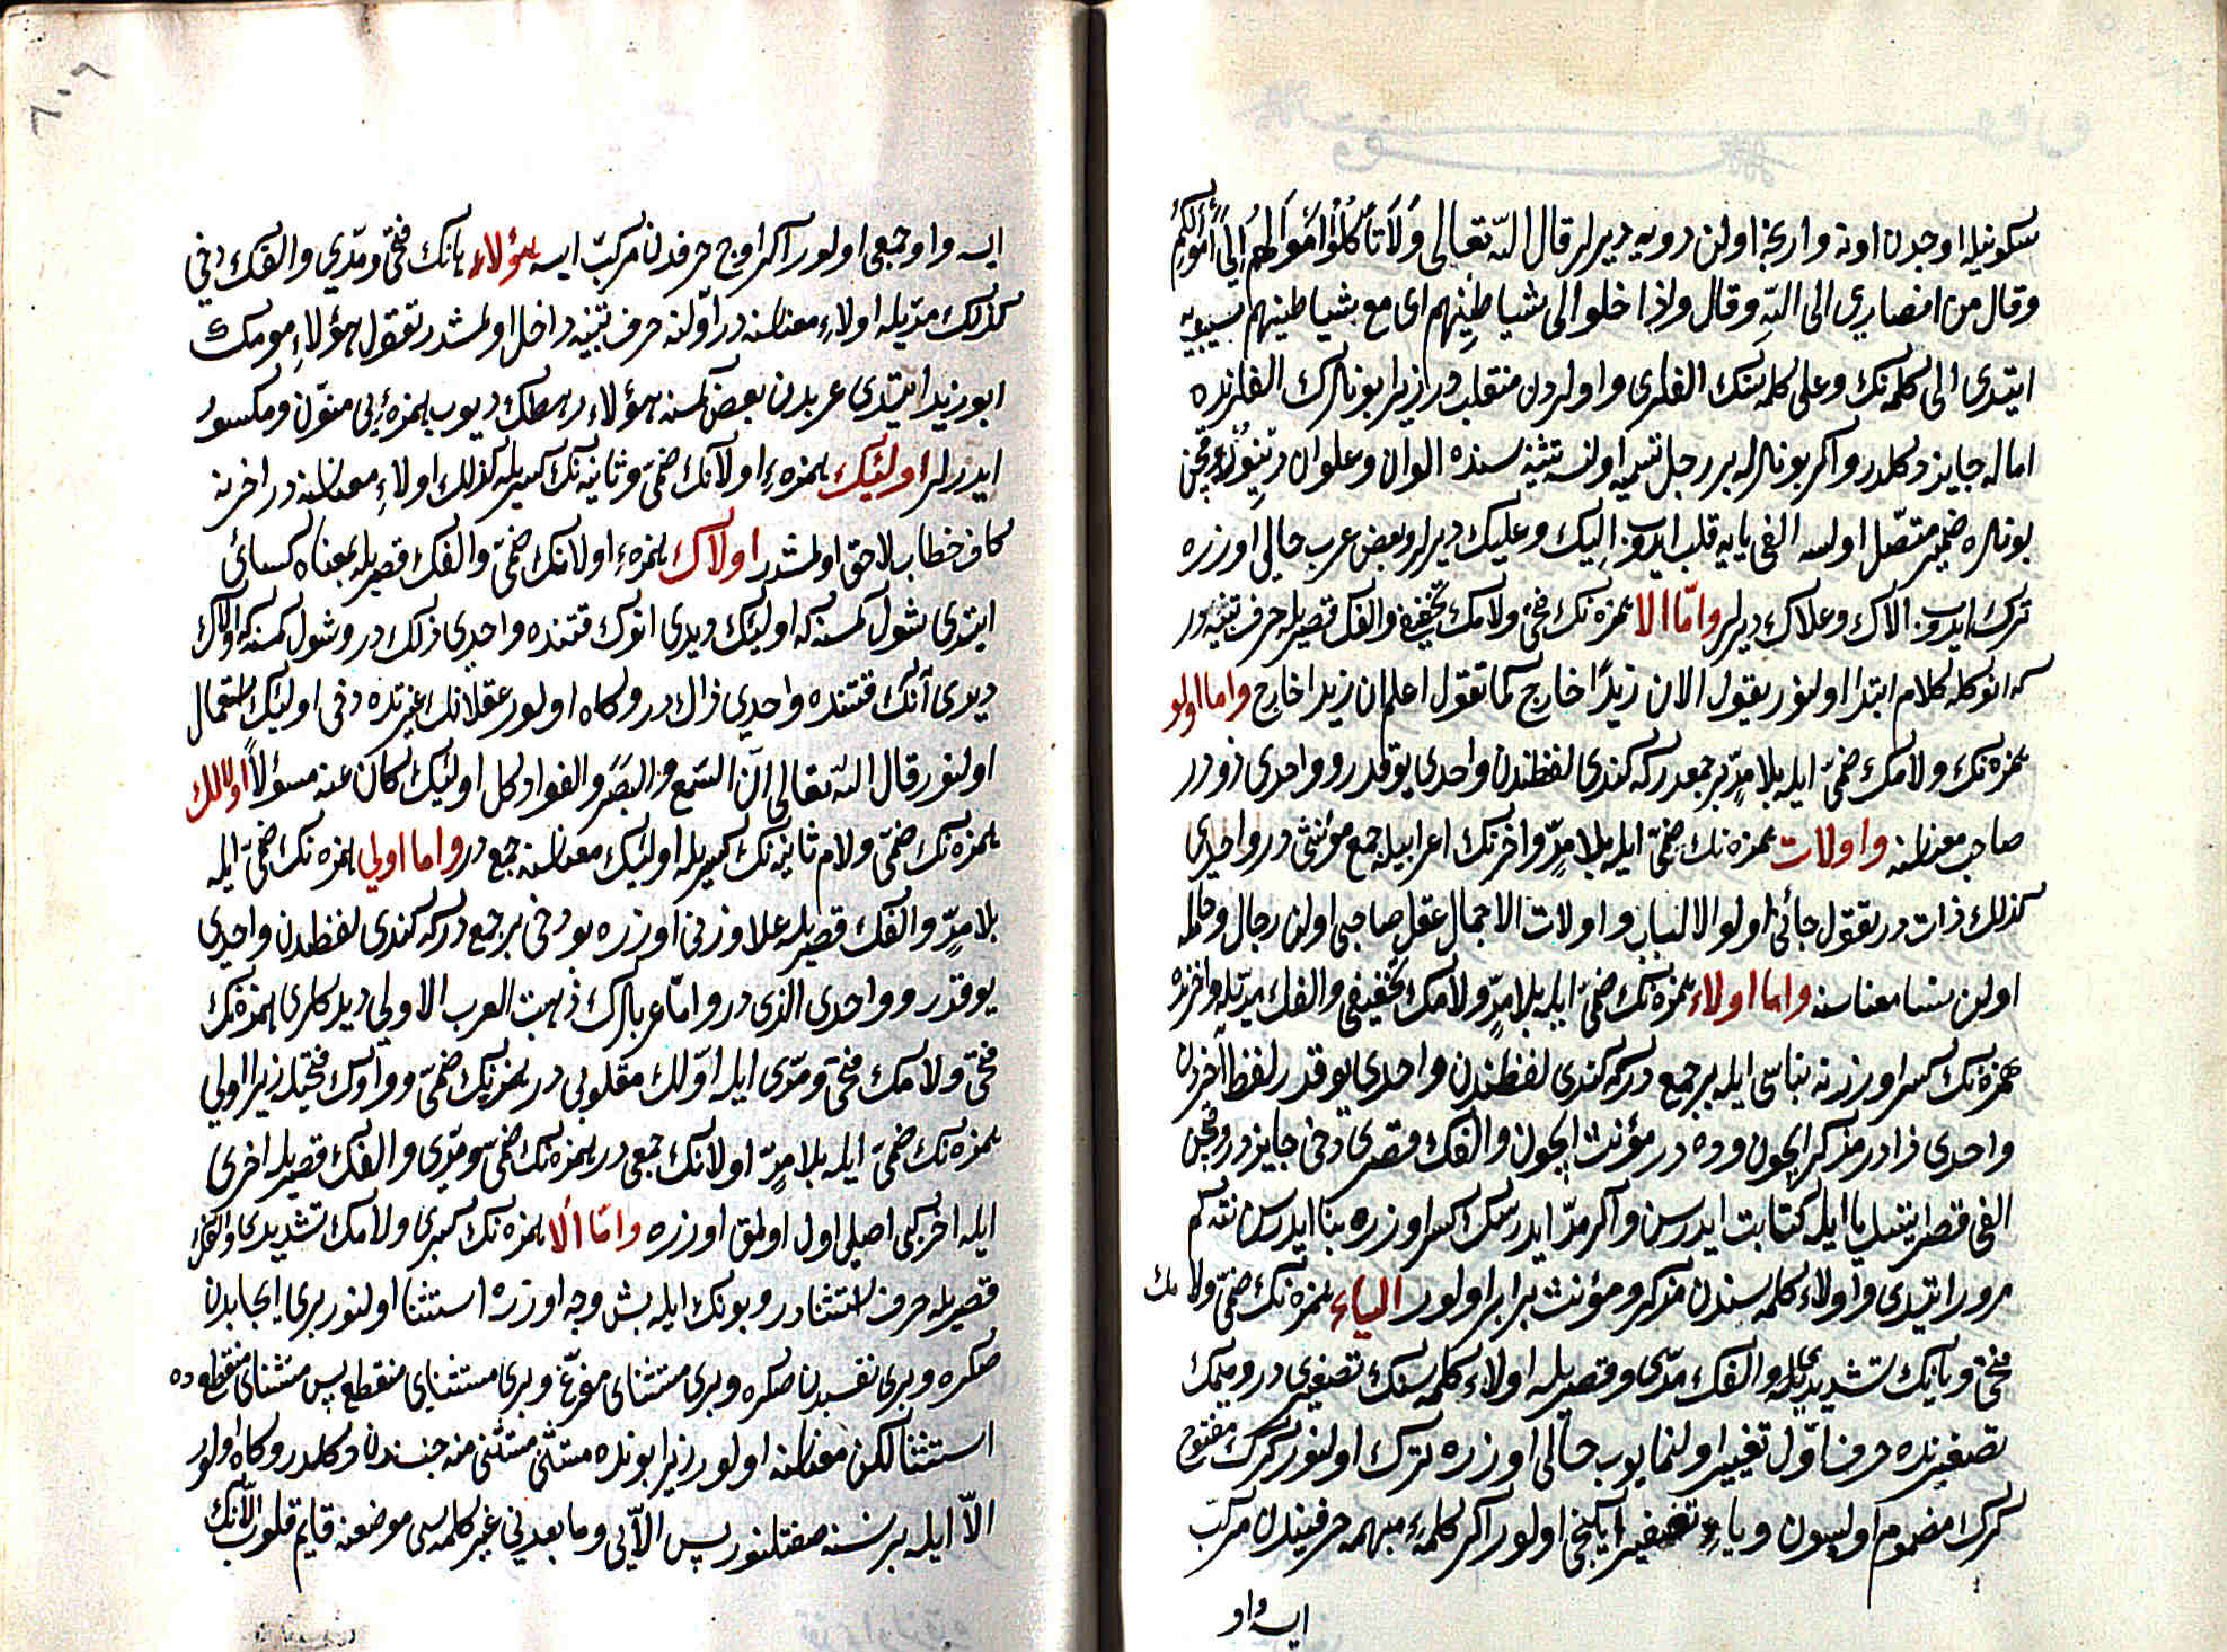 سكونيله اوجدن اونه وارنجه اولن دويه ديرلر قال الله تعالى وَلَا تَأْكُلُوا أَمْوَالَهُمْ إِلَى أَمْوَالِكُمْ
وقال من انصارى الى الله وقال واذا خلوا الى شياطينهم اى مع شياطينهم سيبويه
ايتدى الى كلمه نك وعلى كلمه سنك الفلرى واولردن منقلب در زيرا بونلرك الفلرنده
اماله جايز دكلدر واكر بونلرله بر رجل تسميه اولنسه تثنيه سنده الوان وعلوان درسين وقچن
بونلره ضمير متصل اولسه الفى يايه قلب ايدوب اليك وعليك ديرلر وبعض عرب حالى اوزره
ترك ايدوب الاك وعلاك ديرلر وامّا الا همزه نك فتحى ولامك تخفيفى والفك قصريله حرف تنبيه در
كه انوكله كلام ابتدا اولنور يقول الان زيدًا خارج كما تقول اعلم ان زيدا خارج واما اولو
همزه نك ولامك ضمّى ايله بلا مدّ بر جمعدر كه كندى لفظندن واحدى يوقدر وواحدى ذو در
صاحب معناسنه واولات همزه نك ضمّى ايله بلا مدّ واخرنك اعرابيله جمع مؤنثى در وواحدى
كذلك ذات در تقول جائنى اولوا الالباب واولات الاحمال عقل صاحبى اولن رجال وحمله
اولن نسا معناسنه واما اولاء همزه نك ضمّى ايله بلا مدّ ولامك تخفيفى والفك مدّيله واخرنده
همزه نك كسر اوزرنه بناسى ايله بر جمع در كه كندى لفظندن واحدى يوقدر لفظ آخردن
واحدى ذا در مذكر ايچون وذه در مؤنث ايچون والفك قصرى دخى جايز در وقچن
الفى قصر ايتسك يا ايله كتابت ايدرسن واكر مدّ ايدرسك كسر اوزره بنا ايدرسن نته كم
مرور ايتدى واولاء كلمه سندن مذكر ومؤنث برابر اولور الياء همزه نك ضمّى ولامك
فتحى ويانك تشديديله والفك مدّى وقصريله اولاء كلمه سنك تصغيرى در ومبهمك
تصغيرنده حرف اوّل تغيير اولنمايوب حالى اوزره ترك اولنور كرك مفتوح
كرك مضموم اولسون وياء تصغير ايكنجى اولور اكر كلمهٔ مبهمه حرفيندن مركب
ايسه واو
ايسه واوجمعى اولور اكر اوچ حرفدن مركبّ ايسه هؤلاء هانك فتحى ومدّى والفك دخى
كذلك مدّيله اولاء معناسنه در اوّلنه حرف تنبيه داخل اولمشدر تقول هؤلاء قومك
ابو زيد ايتدى عربدن بعض كمسنه هؤلاء رهطك ديوب همزه يى منوّن ومكسور
ايدرلر اولئيك همزهٔ اولانك ضمّى وثانيه نك كسريله كذلك اولاء معناسنه در اخرنه
كاف خطاب لاحق اولمشدر اولاك همزهٔ اولانك ضمّى والفك قصريله بمعناه كسائى
ايتدى شول كمسنه كه اولئيك ديدى انوك قتنده واحدى ذلك در وشول كمسنه كه اولاك
ديدى آنك قتنده واحدى ذاك در وكاه اولور عقلانك غيرنده دخى اولئيك استعمال
اولنور قال الله تعالى انّ السّمع والبصَر والفواد كل اولئيك كان عنه مسؤلاً اولالك
همزه نك ضمّى ولام ثانيه نك كسريله اولئيك معناسنه جمع در واما اولى همزه نك ضمّى ايله
بلا مدّ والفك قصريله علا وزنى اوزره بو دخى بر جمع در كه كندى لفظندن واحدى
يوقدر وواحدى الذى در وامّا عربلرك ذهبت العرب الاولى ديدكلرى همزه نك
فتحى ولامك فتحى ومدّى ايله اوّلك مقلوبى در همزه نك ضمّى وواوك فتحيله زيرا اولى
همزه نك ضمّى ايله بلا مدّ اولانك جمعى در همزه نك ضمّى ومدّى والفك قصريله اخرى
ايله اخر كبى اصلى اول اولمق اوزره وامّا ألا همزه نك كسرى ولامك تشديدى والفك
قصريله حرف استثنا در وبونك ايله بش وجه اوزره استثنا اولنور برى ايجابدن
صكره وبرى نفيدن صكره وبرى مستثناى مفرّغ وبرى مستثناى منقطع پس مستثناى منقطعده
استثنا لكن معناسنه اولور زيرا بونده مستثنى مستثنى منه جنسندن دكلدر وكاه اولور
الاّ ايله بر نسنه صفتلنور پس الاّيى وما بعدينى غير كلمه سى موضعنه قايم قلوب الاّنك